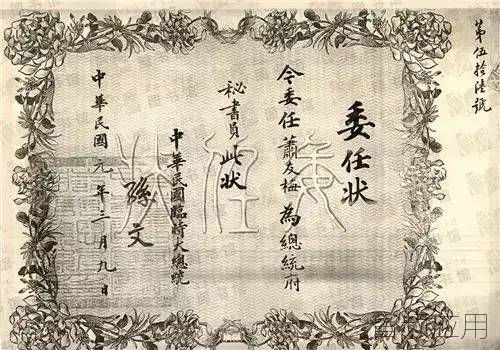 第伍拾陸號
委任状
令委任蕭友梅為總統府
秘書員此状
中華民國臨時大總統
孫文
中華民國元年三月九日
委任狀
应用